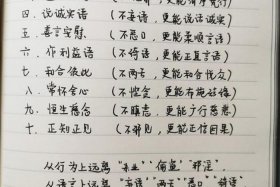 四、说诚实语 （不妄语，更能说诚实）
五、善言实慰 （不恶口，更能柔顺言语）
六、作利益语 （不绮语，更能正复言语）
七、和合彼此 （不两舌，更能和合悦众）
八、常怀舍心 （不悭贪，更能布施破悭）
九、恒生慈念 （不瞋恚，更能广行慈悲）
十、正知正见 （不邪见，更能正信因果）
从行为上远离“杀业”“偷盗”“邪淫”
从语言上远离“妄语”“两舌”“恶口”“绮语”